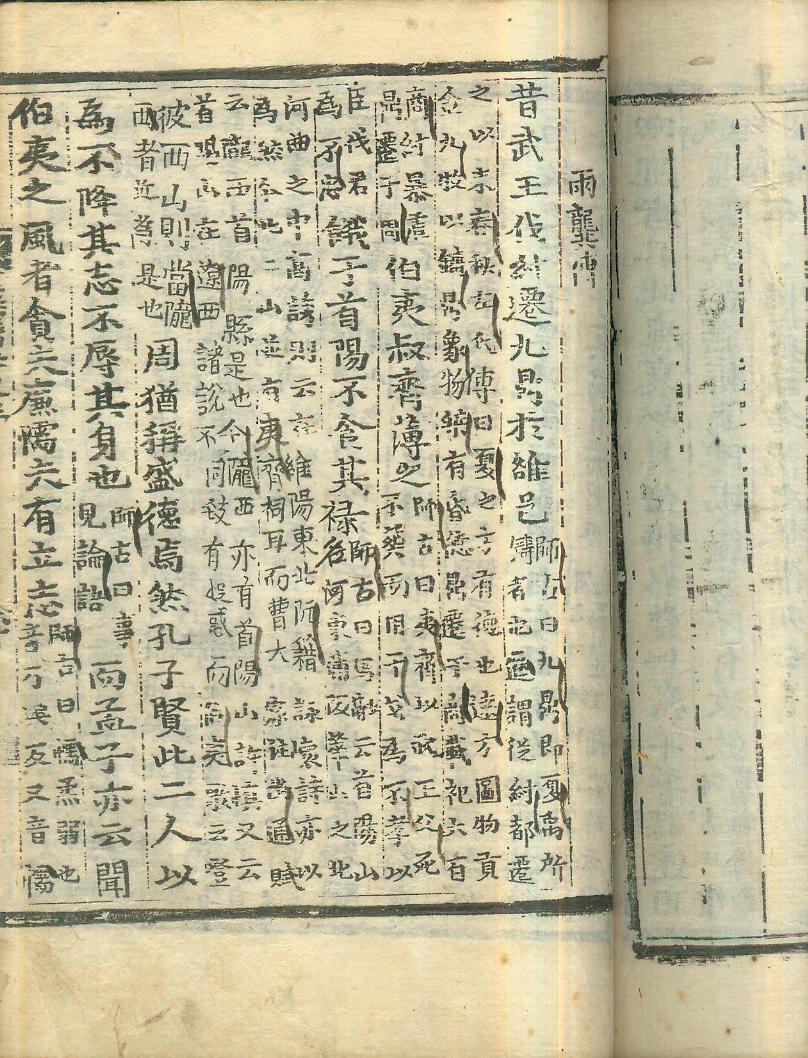 兩龔傳
昔武王伐紂遷九鼎於雒邑師古曰九鼎即夏禹所
鑄者也遷謂從紂都遷
之以來春秋左氏傳曰夏之方有德也遠方圖物貢
金九牧以鑄鼎象物桀有昏德鼎遷于商載祀六百
商紂暴虐
鼎遷于周
伯夷叔齊薄之師古曰夷齊以武王父死
不葬而用干戈為不孝以
臣伐君
為不忠
餓于首陽不食其祿師古曰馬融云首陽山
在河東蒲坂華山之北
河曲之中高誘則云在雒陽東北阮籍詠懷詩亦以
為然今此二山並有夷齊祠耳而曹大家注幽通賦
云隴西首陽縣是也今隴西亦有首陽山許慎又云
首陽山在遼西諸說不同致有疑惑而伯夷歌云登
彼西山則當隴
西者近為是也
周猶稱盛德焉然孔子賢此二人以
為不降其志不辱其身也師古曰事
見論語
而孟子亦云聞
伯夷之風者貪夫廉懦夫有立志師古曰懦柔弱也
音乃喚反又音儒